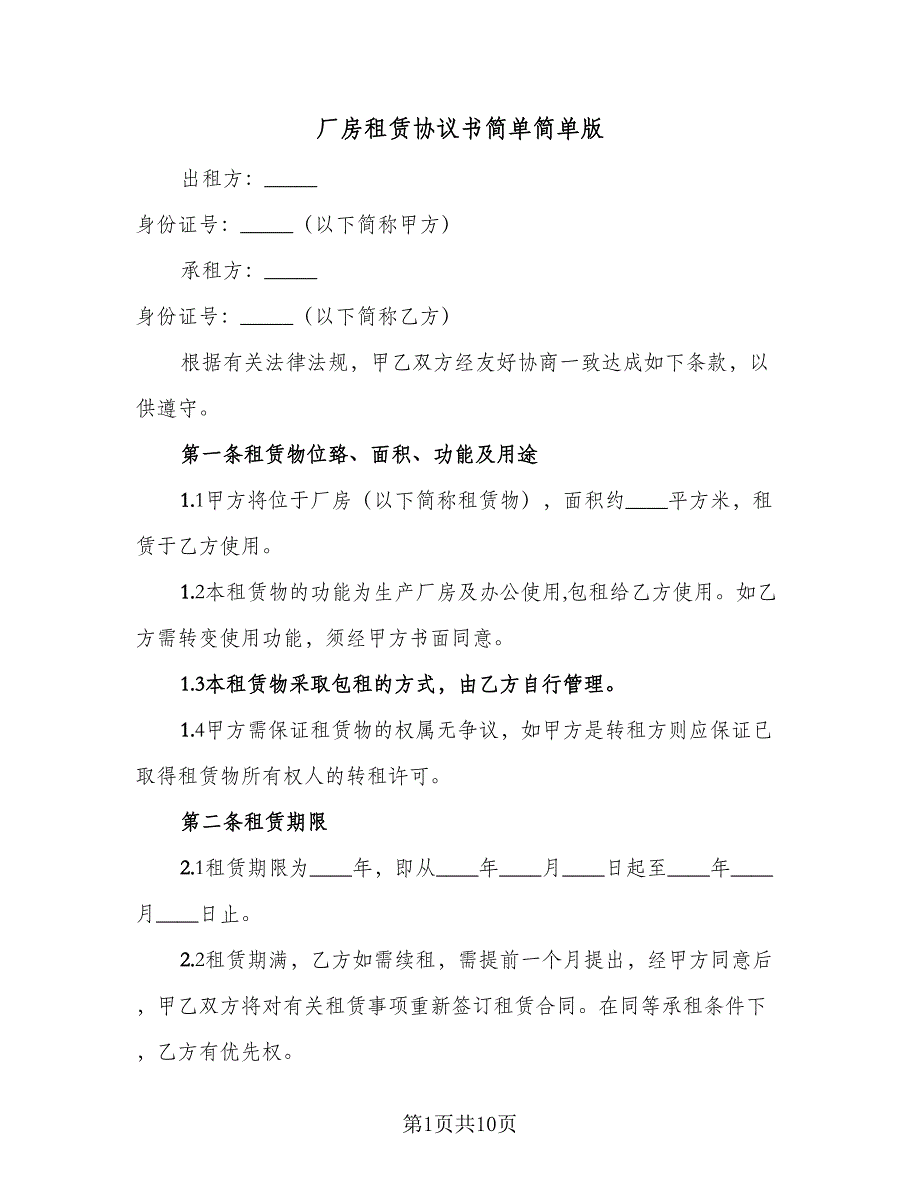 厂房租赁协议书简单简单版
出租方：_____
身份证号：_____（以下简称甲方）
承租方：_____
身份证号：_____（以下简称乙方）
根据有关法律法规，甲乙双方经友好协商一致达成如下条款，以
供遵守。
第一条租赁物位臵、面积、功能及用途
1.1甲方将位于厂房（以下简称租赁物），面积约____平方米，租
赁于乙方使用。
1.2本租赁物的功能为生产厂房及办公使用,包租给乙方使用。如乙
方需转变使用功能，须经甲方书面同意。
1.3本租赁物采取包租的方式，由乙方自行管理。
1.4甲方需保证租赁物的权属无争议，如甲方是转租方则应保证已
取得租赁物所有权人的转租许可。
第二条租赁期限
2.1租赁期限为____年，即从____年____月____日起至____年____
月____日止。
2.2租赁期满，乙方如需续租，需提前一个月提出，经甲方同意后
，甲乙双方将对有关租赁事项重新签订租赁合同。在同等承租条件下
，乙方有优先权。
第1页共10页